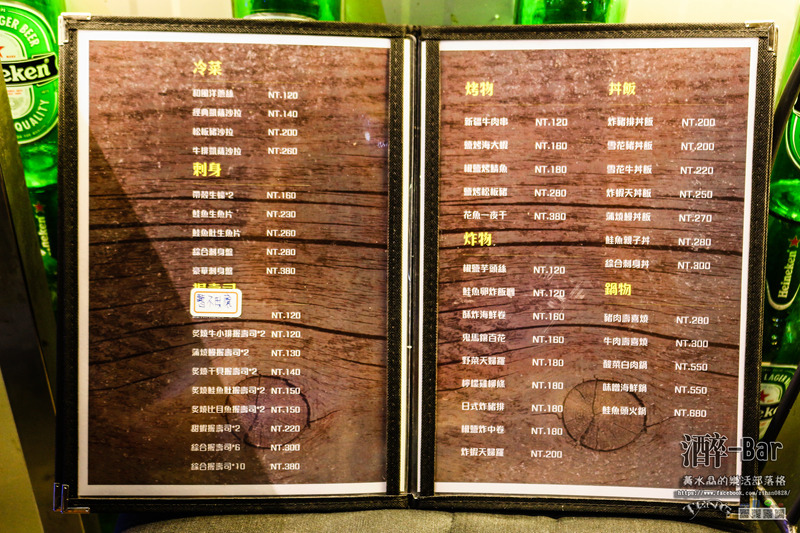 冷菜
和風洋蔥絲 NT.120
經典凱薩沙拉 NT.140
松板豬沙拉 NT.200
牛排凱薩沙拉 NT.260
刺身
帶殼生蠔*2 NT.160
鮭魚生魚片 NT.230
鮭魚肚生魚片 NT.260
綜合刺身盤 NT.280
豪華刺身盤 NT.380
握壽司
NT.120
炙燒牛小排握壽司*2 NT.120
蒲燒鰻握壽司*2 NT.130
炙燒干貝握壽司*2 NT.140
炙燒鮭魚肚握壽司*2 NT.150
炙燒比目魚握壽司*2 NT.150
甜蝦握壽司*2 NT.220
綜合握壽司*6 NT.300
綜合握壽司*10 NT.380
烤物
新疆牛肉串 NT.120
鹽烤海大蝦 NT.160
椒鹽烤鯖魚 NT.180
鹽烤松板豬 NT.280
花魚一夜干 NT.380
炸物
椒鹽芋頭絲 NT.120
鮭魚卵炸飯糰 NT.160
酥炸海鮮卷 NT.160
鬼馬釀百花 NT.160
野菜天婦羅 NT.180
檸檬雞柳條 NT.180
日式炸豬排 NT.180
椒鹽炸中卷 NT.180
炸蝦天婦羅 NT.200
丼飯
炸豬排丼飯 NT.200
雪花豬丼飯 NT.200
雪花牛丼飯 NT.220
炸蝦天丼飯 NT.250
蒲燒鰻丼飯 NT.270
鮭魚親子丼 NT.280
綜合刺身丼 NT.300
鍋物
豬肉壽喜燒 NT.280
牛肉壽喜燒 NT.300
酸菜白肉鍋 NT.550
味噌海鮮鍋 NT.550
鮭魚頭火鍋 NT.680
酒醉-Bar
黃水晶的樂活部落格
https://www.facebook.com/sthan0828/
Heineken
QUALITY
Heineken